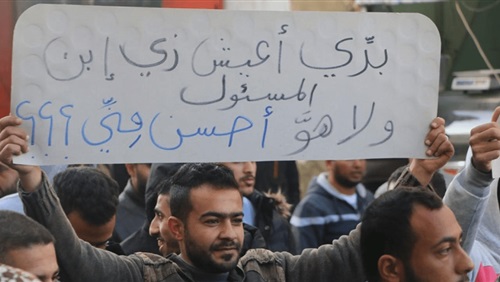 بدِّي أعيش زي إبن
المسئول
ولا هوَّ أحسن منِّي ؟؟؟؟